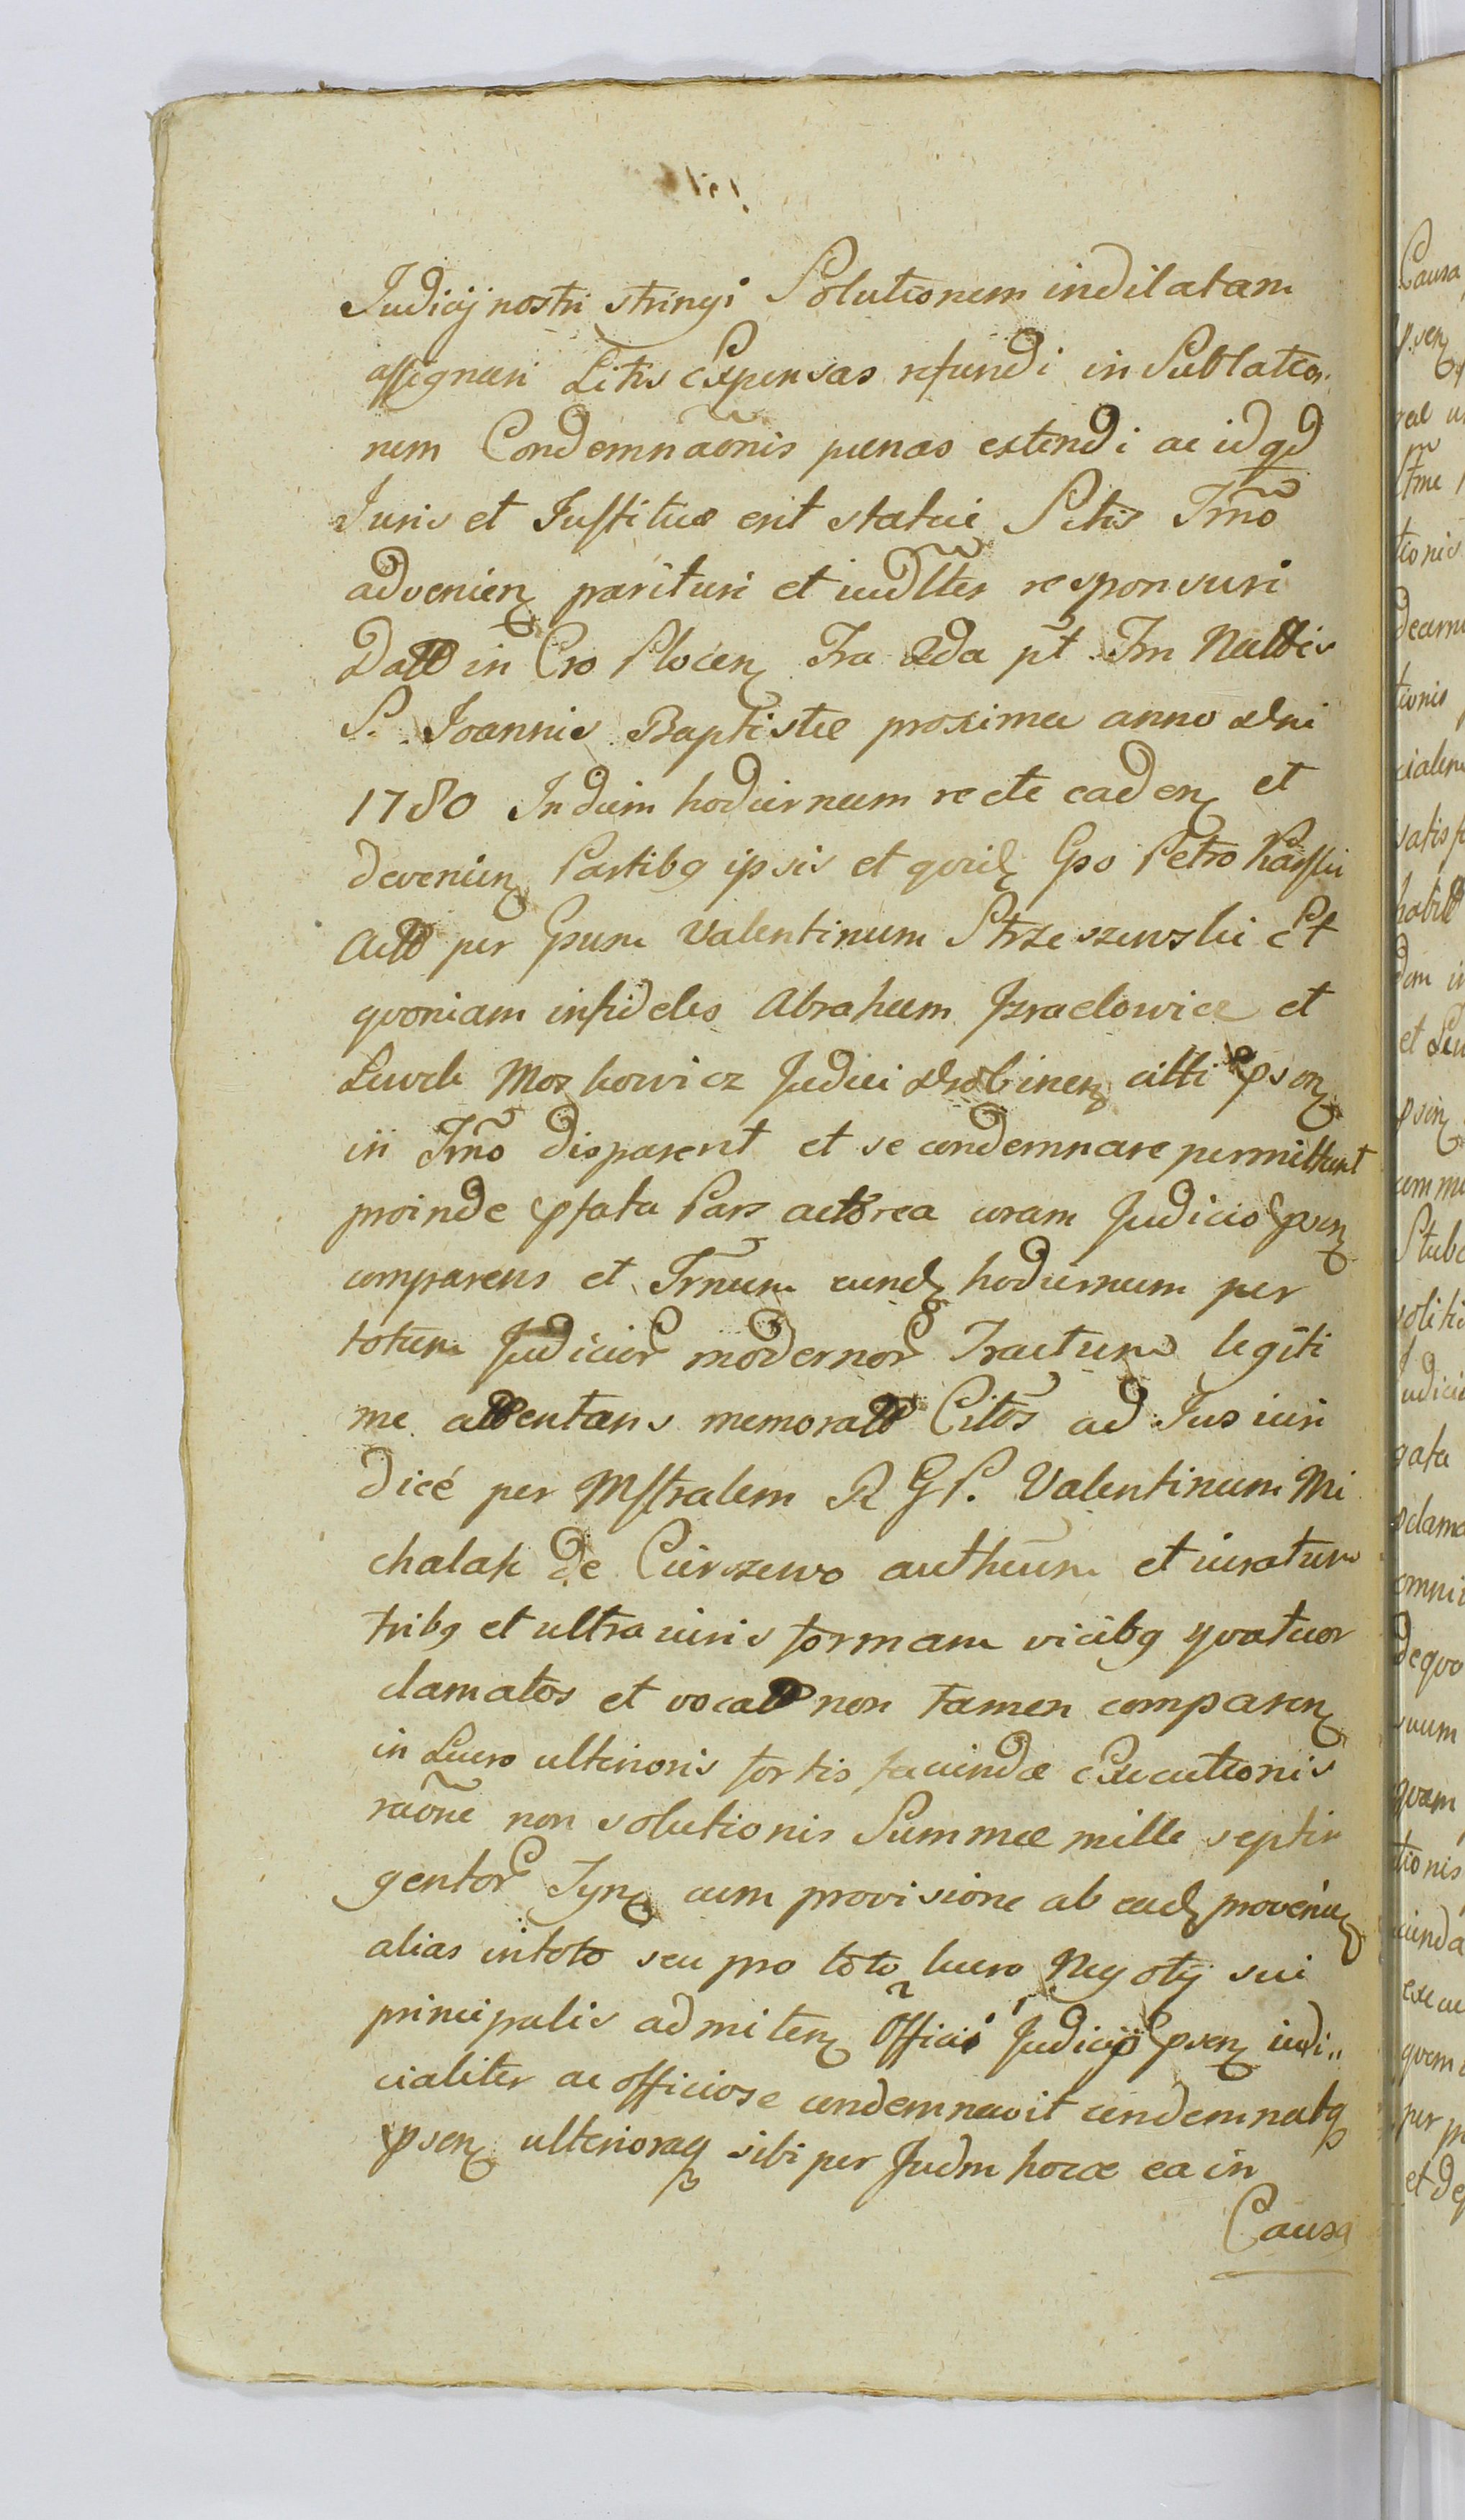 Judicij nostri stringi Solutionem indilatam
assignari Litis Expensas refundi in Sublatio
nem Condemnaōnis pœnas extendi ac id qd
Juris et Justitiæ erit statui Sitis Tm̃o
advenien parituri et iudłłter responsuri
Datt in Cro Plocen Fra 2da pt Fm Nattis
S. Joannis Baptistæ proxima anno Dni
1780 In diem hodiernum recte caden et
devenien Partibq ipsis et quid Gso Petro
Actt per Gsum Valentinum Strzeszewski Et
quoniam infideles Abraham Jzraelowicz et
Lewek Moszkowicz Judæi Drobinen citti psen
in Tm̃o disparent et se condemnare permittunt
proinde pfata Pars actorea coram Judicio psen
comparens et Trnum eund hodiernum per
totum Judicior modernor Tractum legiti
me attentans memoratt Citos ad Jus iuri
dicé per Mstralem R G P. Valentinum Mi
chalak de Cierszewo authēum et iuratum
tribq et ultra iuris formam vicibq quatuor
clamatos et vocatt non tamen comparen
in Lucro ulterioris fortis faciendæ Executionis
raōne non solutionis Summæ mille septin
gentor Tyn cum provisione ab ead provenien
alias in toto seu pro toto lucro Negotij sui
principalis admiten Officii Judicij psen iudi
cialiter ac officiose condemnavit condemnatq
psen ulterioraq sibi per Judm hocce ea in
Causa